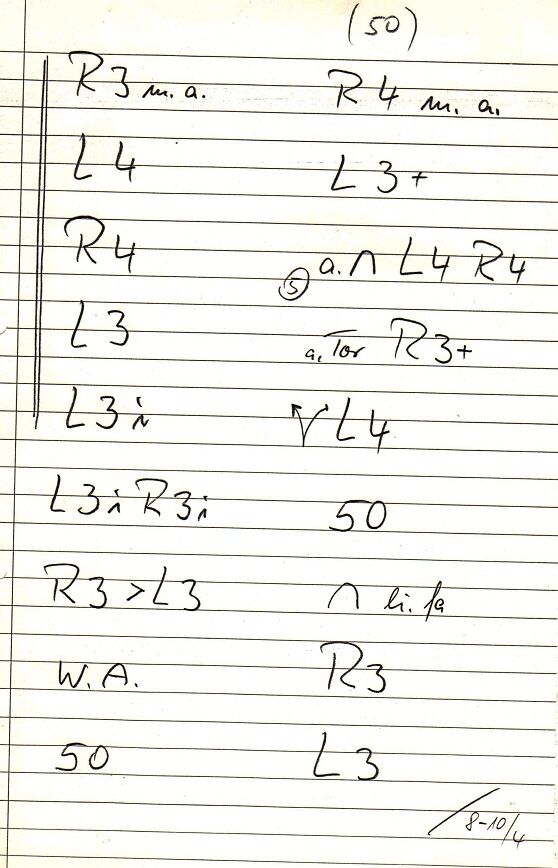 (50)
R3 m. a.
L4
R4
L3
L3i
L3i R3i
R3 > L3
W. A.
50
R4 m. a.
L3+
⑤ a. ∩ L4 R4
a. Tor R3+
L4
50
∩ li. fa
R3
L3
8-10/4